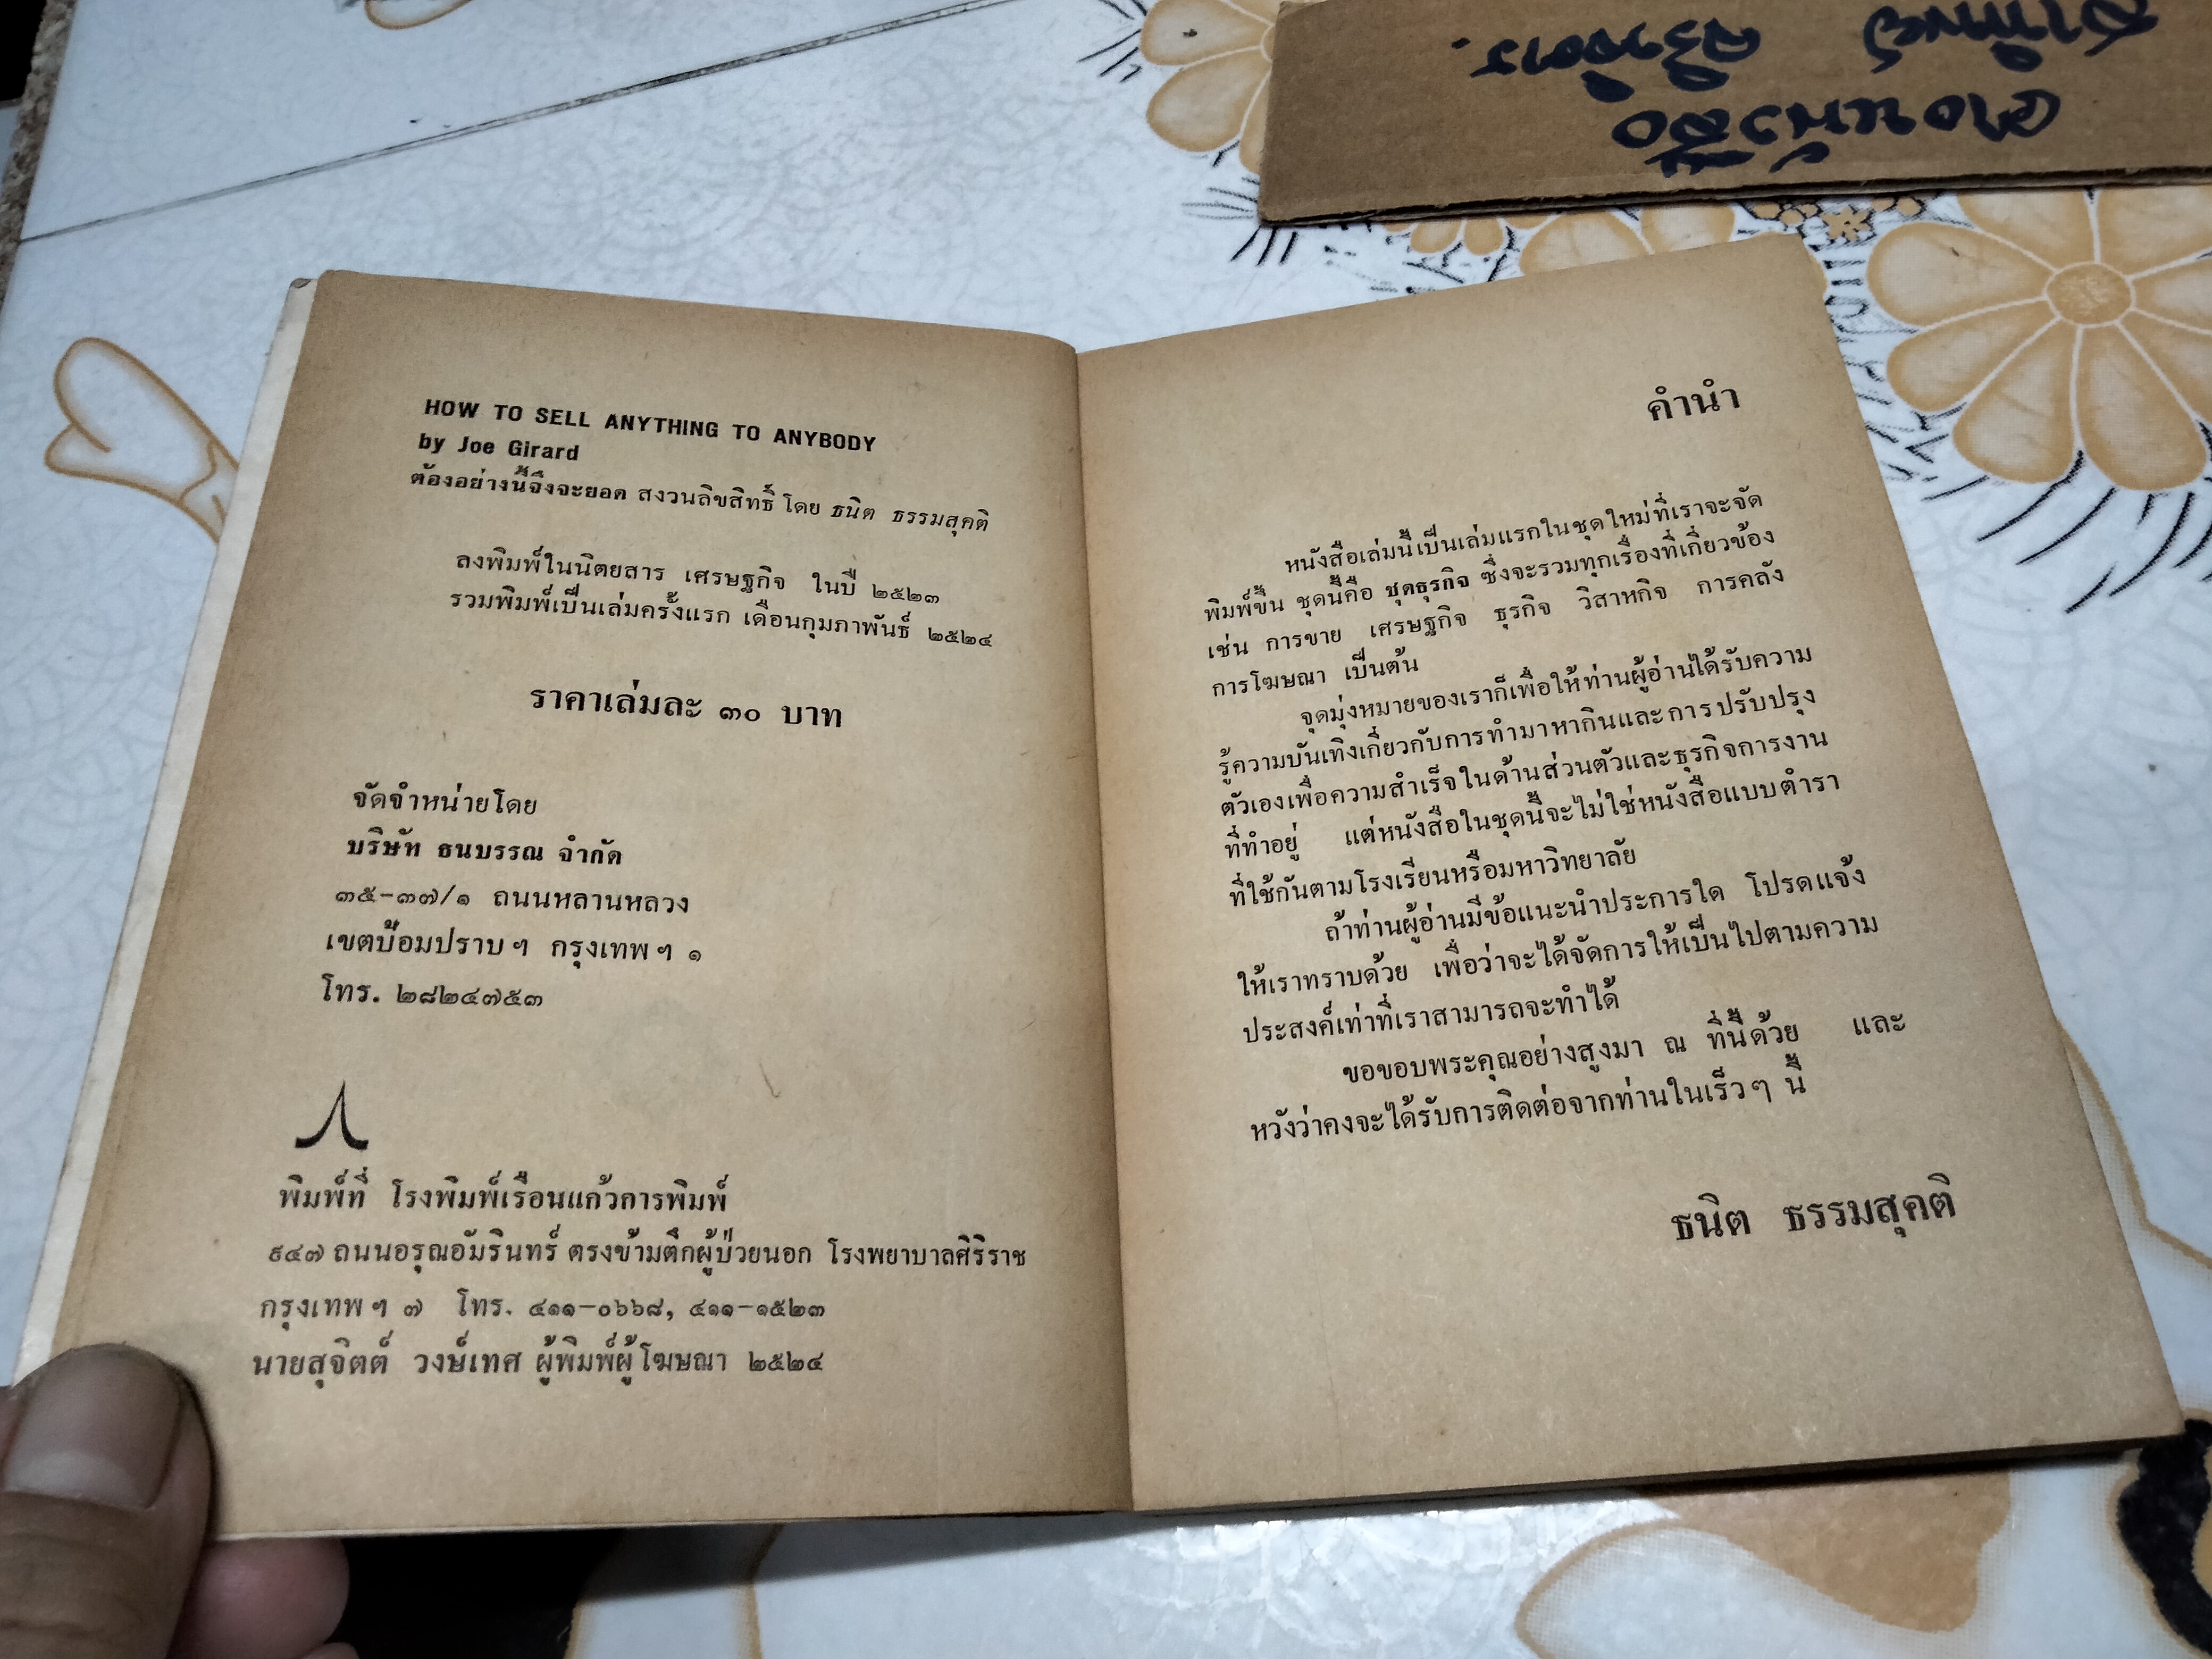 HOW TO SELL ANYTHING TO ANYBODY
by Joe Girard
ต้องอย่างนี้จึงจะยอด สงวนลิขสิทธิ์ โดย ธนิต ธรรมสุคติ
ลงพิมพ์ในนิตยสาร เศรษฐกิจ ในปี ๒๕๒๓
รวมพิมพ์เป็นเล่มครั้งแรก เดือนกุมภาพันธ์ ๒๕๒๔
ราคาเล่มละ ๓๐ บาท
จัดจำหน่ายโดย
บริษัท ธนบรรณ จำกัด
๓๕-๓๗/๑ ถนนหลานหลวง
เขตป้อมปราบ ฯ กรุงเทพ ฯ ๑
โทร. ๒๘๒๔๗๕๓
พิมพ์ที่ โรงพิมพ์เรือนแก้วการพิมพ์
๙๔๗ ถนนอรุณอัมรินทร์ ตรงข้ามตึกผู้ป่วยนอก โรงพยาบาลศิริราช
กรุงเทพ ฯ ๗ โทร. ๔๑๑-๐๖๖๘, ๔๑๑-๑๕๒๓
นายสุจิตต์ วงษ์เทศ ผู้พิมพ์ผู้โฆษณา ๒๕๒๔
คำนำ
หนังสือเล่มนี้เป็นเล่มแรกในชุดใหม่ที่เราจะจัด
พิมพ์ขึ้น ชุดนี้คือ ชุดธุรกิจ ซึ่งจะรวมทุกเรื่องที่เกี่ยวข้อง
เช่น การขาย เศรษฐกิจ ธุรกิจ วิสาหกิจ การคลัง
การโฆษณา เป็นต้น
จุดมุ่งหมายของเราก็เพื่อให้ท่านผู้อ่านได้รับความ
รู้ความบันเทิงเกี่ยวกับการทำมาหากินและการปรับปรุง
ตัวเองเพื่อความสำเร็จในด้านส่วนตัวและธุรกิจการงาน
ที่ทำอยู่ แต่หนังสือในชุดนี้จะไม่ใช่หนังสือแบบตำรา
ที่ใช้กันตามโรงเรียนหรือมหาวิทยาลัย
ถ้าท่านผู้อ่านมีข้อแนะนำประการใด โปรดแจ้ง
ให้เราทราบด้วย เพื่อว่าจะได้จัดการให้เป็นไปตามความ
ประสงค์เท่าที่เราสามารถจะทำได้
ขอขอบพระคุณอย่างสูงมา ณ ที่นี้ด้วย และ
หวังว่าคงจะได้รับการติดต่อจากท่านในเร็วๆ นี้
ธนิต ธรรมสุคติ